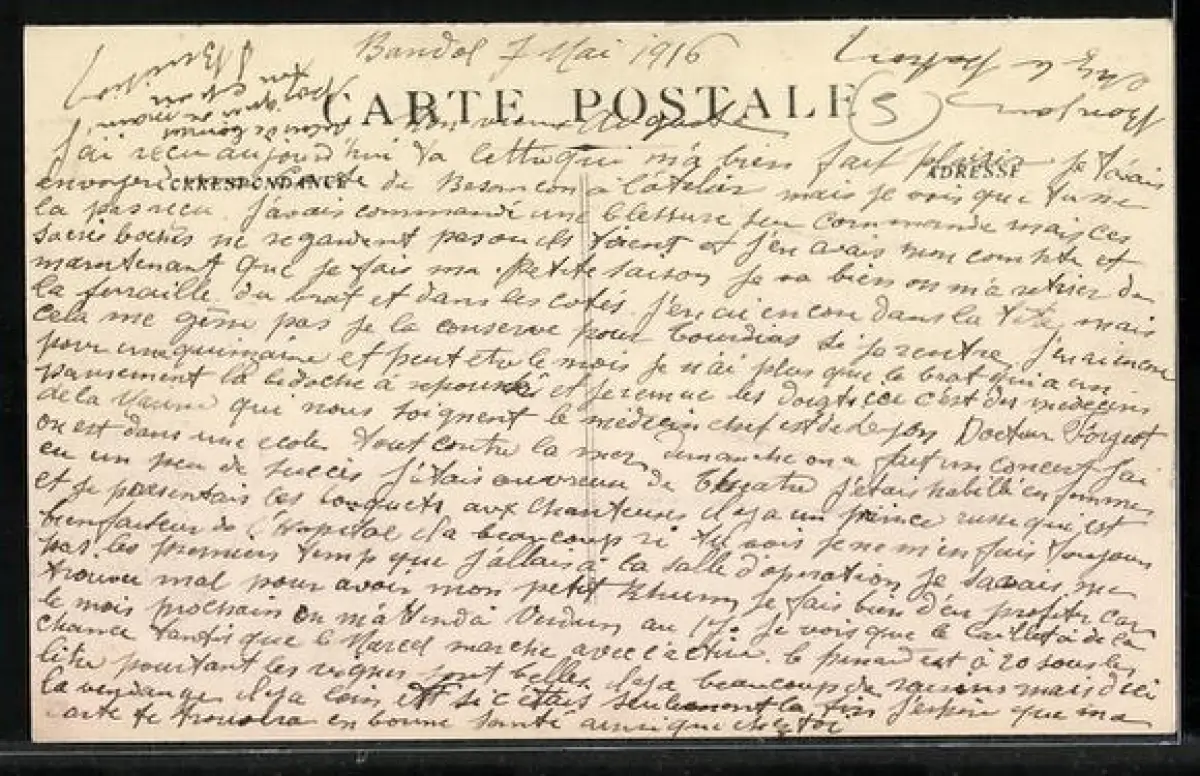 Bandol 7 Mai 1916
CARTE POSTALE
5
mon vieux Auguste
J'ai reçu aujourd'hui ta lettre qui m'a bien fait plaisir je t'avais
CORRESPONDANCE
ADRESSE
envoyé carte de Besançon à l'atelier mais je vois que tu ne
la pas reçu. J'avais commandé une blessure sur commande mais ces
sacrés boches ne regardent pas ou ils tirent et j'en avais mon compte et
maintenant que je fais ma petite saison je va bien on m'a retirer de
la ferraille du brat et dans les cotés. J'en ai encore dans la tête, mais
cela me gêne pas je la conserve pour si je rentre, j'en ai encore
pour une quinzaine et peut etre le mois je n'ai plus que le brat qui a un
pansement la à repoussé et je remue les doigts ice c'est des medecins
de la qui nous soignent le médecin chef est de Dijon Docteur
on est dans une ecole tout contre la mer, dimanche on a fait un concert j'ai
eu un peu de succès j'étais ouvreuse de théatre j'étais habillé en femme
et je presentais les bouquets aux chanteuses il y a un prince russe qui est
bienfaiteur de l'Hopital il a beaucoup ri tu vois je ne m'en fais toujours
pas, les premiers temp que j'allais à la salle d'opération je savais me
trouver mal pour avoir mon petit Rhum, je fais bien d'en profiter car
le mois prochain on m'attend à Verdun au je vois que le à de la
chance tandis que le Marcel marche avec l'active. le pinard est à 20 sous le
litre pourtant les vignes sont belles il y a beaucoup de raisins mais d'ici
la vendange il y a loin et si c'était seulement la fin j'espère que ma
carte te trouvera en bonne santé ainsi que chez toi